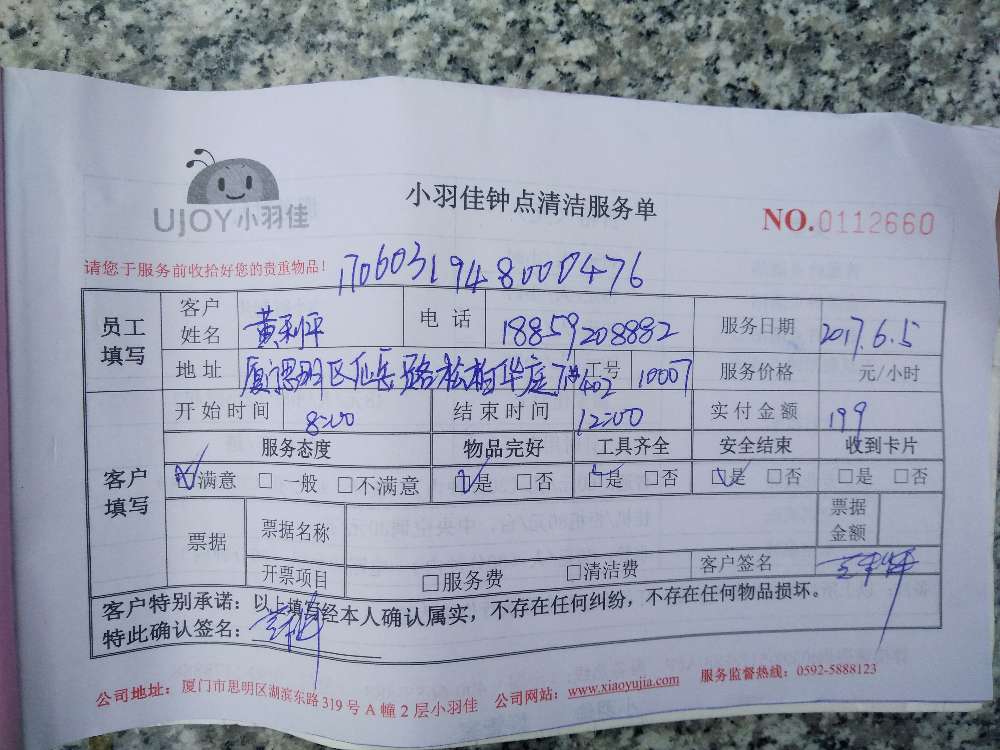 UJOY小羽佳
小羽佳钟点清洁服务单
NO.0112660
请您于服务前收拾好您的贵重物品!
员工填写 客户姓名 黄利平 电话 18859208882 服务日期 2017.6.5
地址 厦门思明区仙岳路松柏华庭 402 工号 10007 服务价格 元/小时
客户填写 开始时间 8:00 结束时间 12:00 实付金额 199
服务态度 物品完好 工具齐全 安全结束 收到卡片
☑满意 □一般 □不满意 ☑是 □否 ☑是 □否 ☑是 □否 □是 □否
票据 票据名称 票据金额
开票项目 □服务费 □清洁费 客户签名
客户特别承诺:以上填写经本人确认属实,不存在任何纠纷,不存在任何物品损坏。
特此确认签名:
公司地址:厦门市思明区湖滨东路319号A幢2层小羽佳 公司网站:www.xiaoyujia.com 服务监督热线:0592-5888123